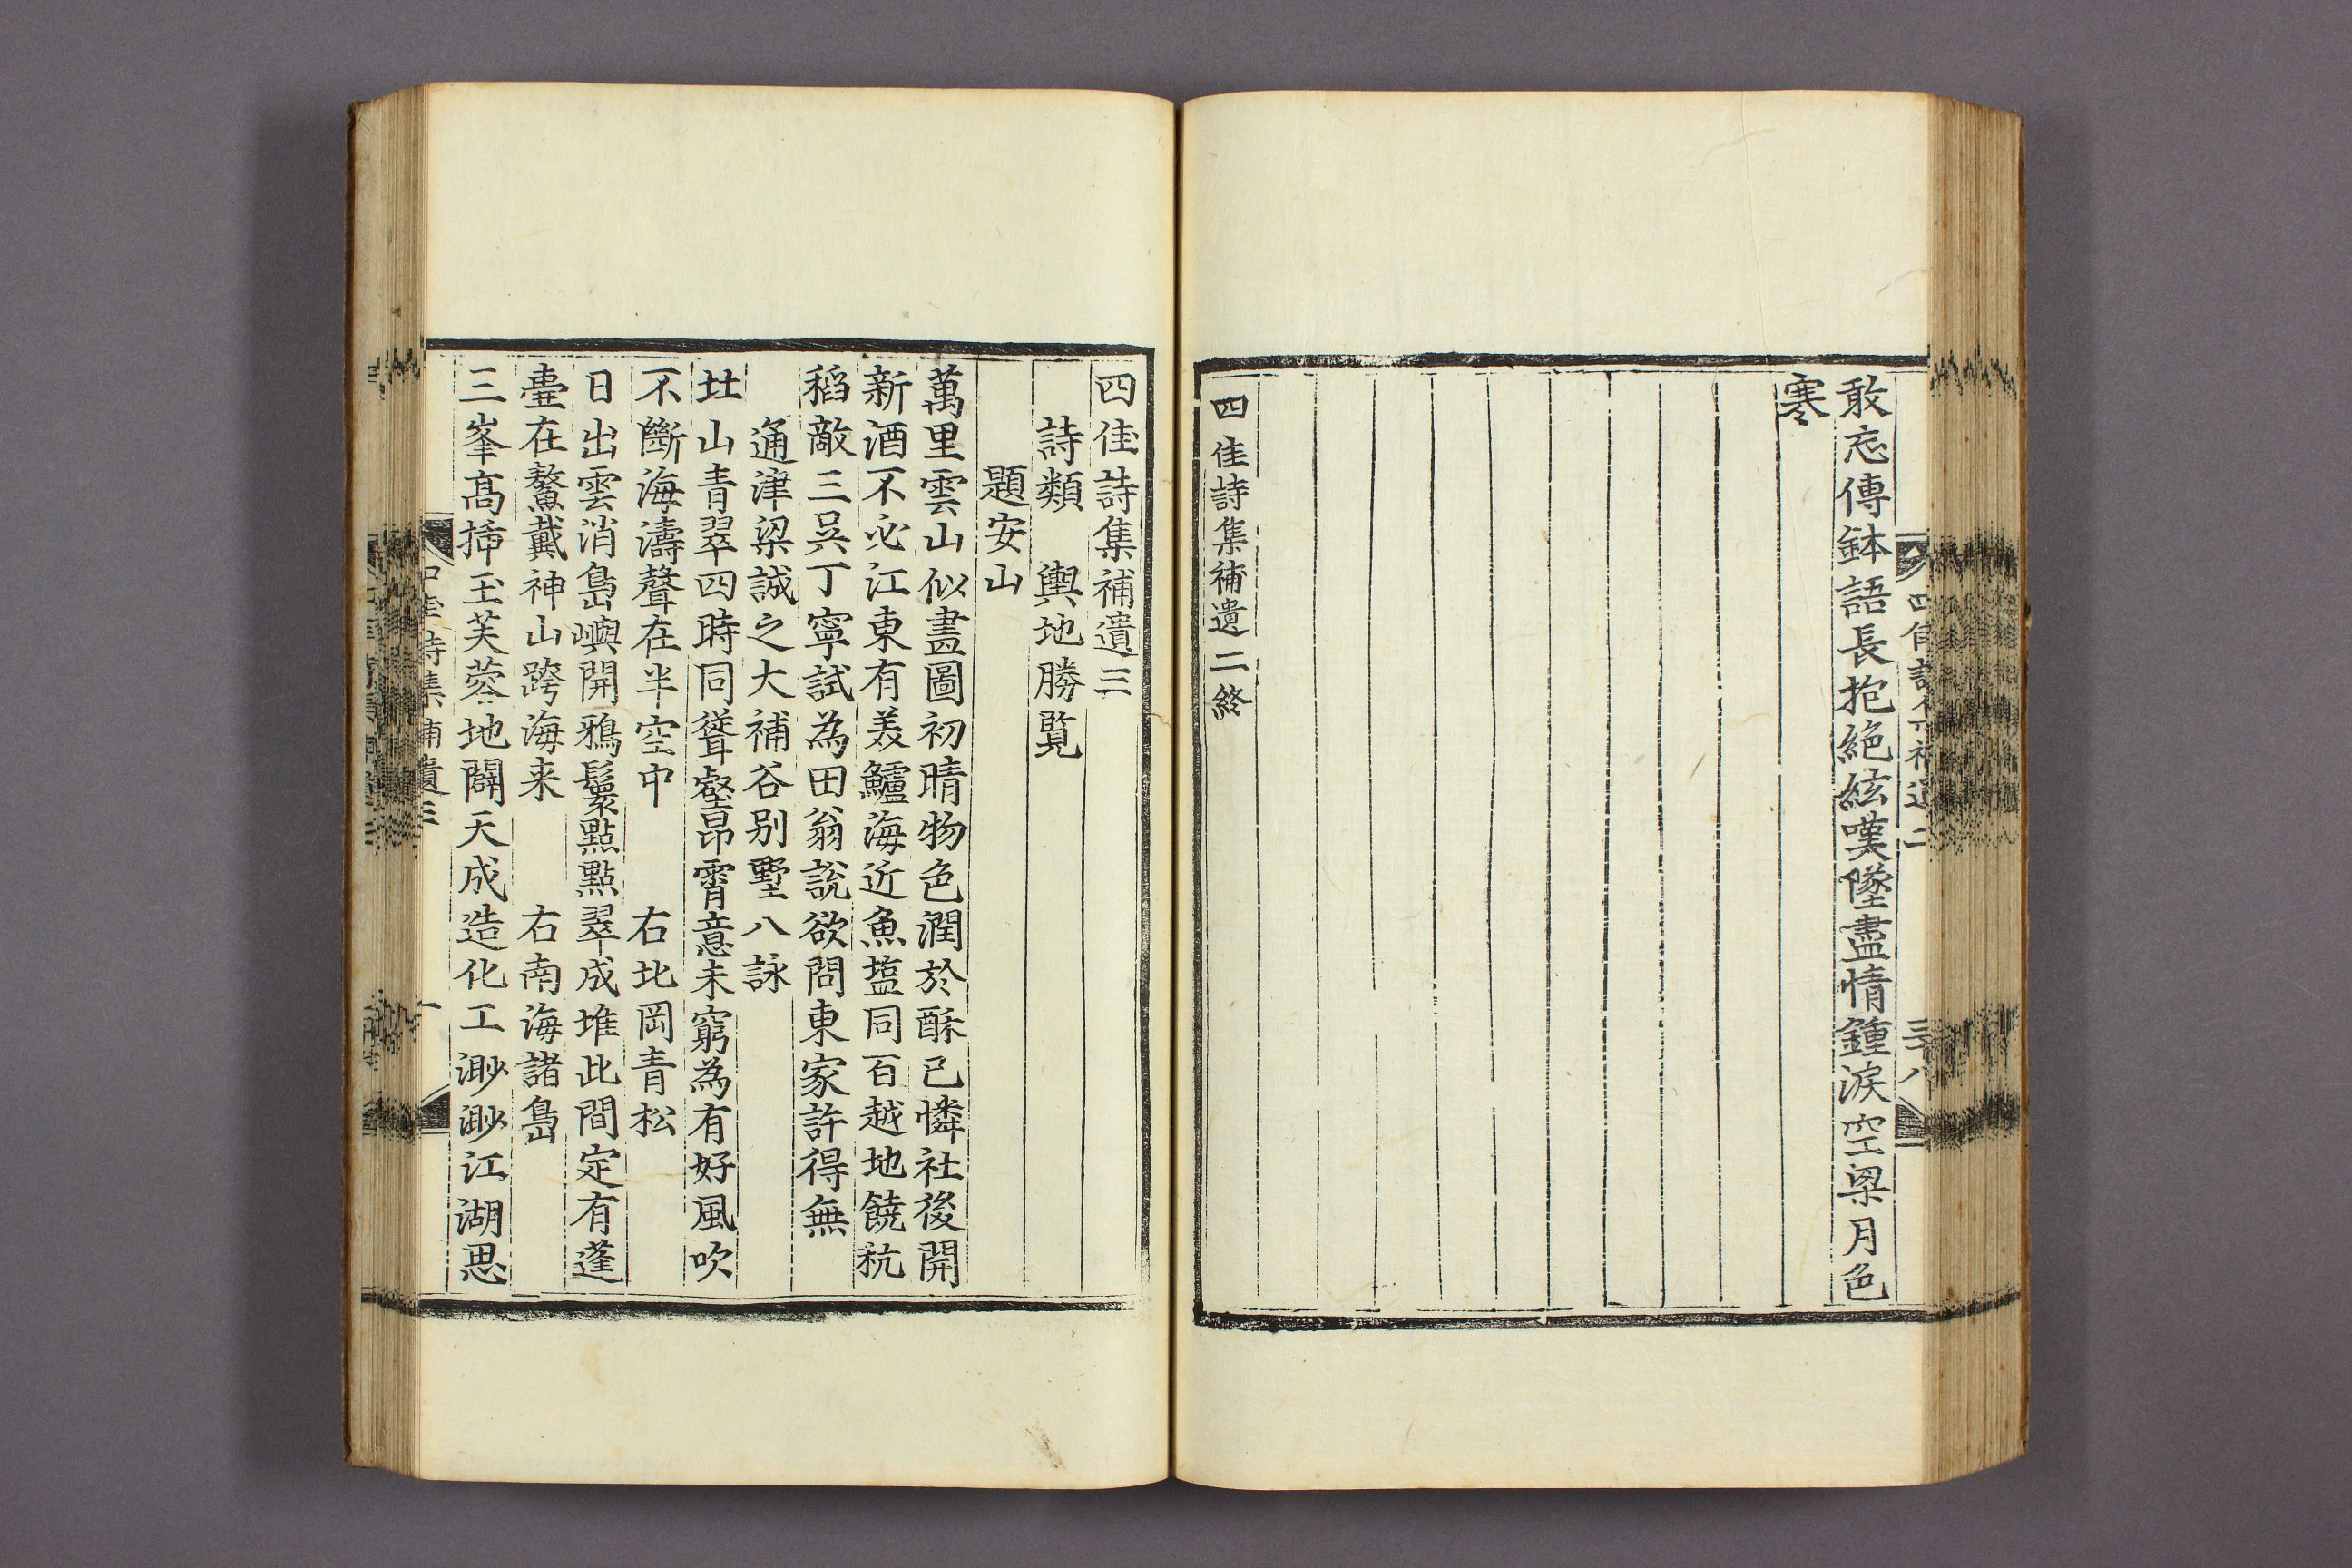 敢忘傳鉢語長抱絕絃嘆墜盡情鍾淚空梁月色
寒
四佳詩集補遺二終
四佳詩集補遺三
詩類　輿地勝覧
題安山
萬里雲山似畫圖初晴物色潤於酥已憐社後開
新酒不必江東有美鱸海近魚塩同百越地饒秔
稻敵三吳丁寧試為田翁說欲問東家許得無
通津梁誠之大補谷别墅八詠
北山青翠四時同聳壑昂霄意未窮為有好風吹
不斷海濤聲在半空中　右北岡青松
日出雲消島嶼開鴉鬟點點翠成堆此間定有蓬
臺在鰲戴神山跨海来　右南海諸島
三峯髙揷玉芙蓉地闢天成造化工渺渺江湖思
四佳詩集補遺三
一